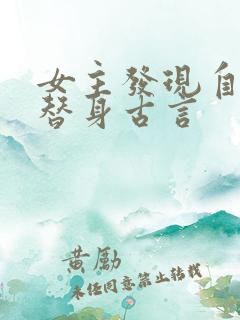 女主發現自
替身古言
黃勵
未经同意禁止转载